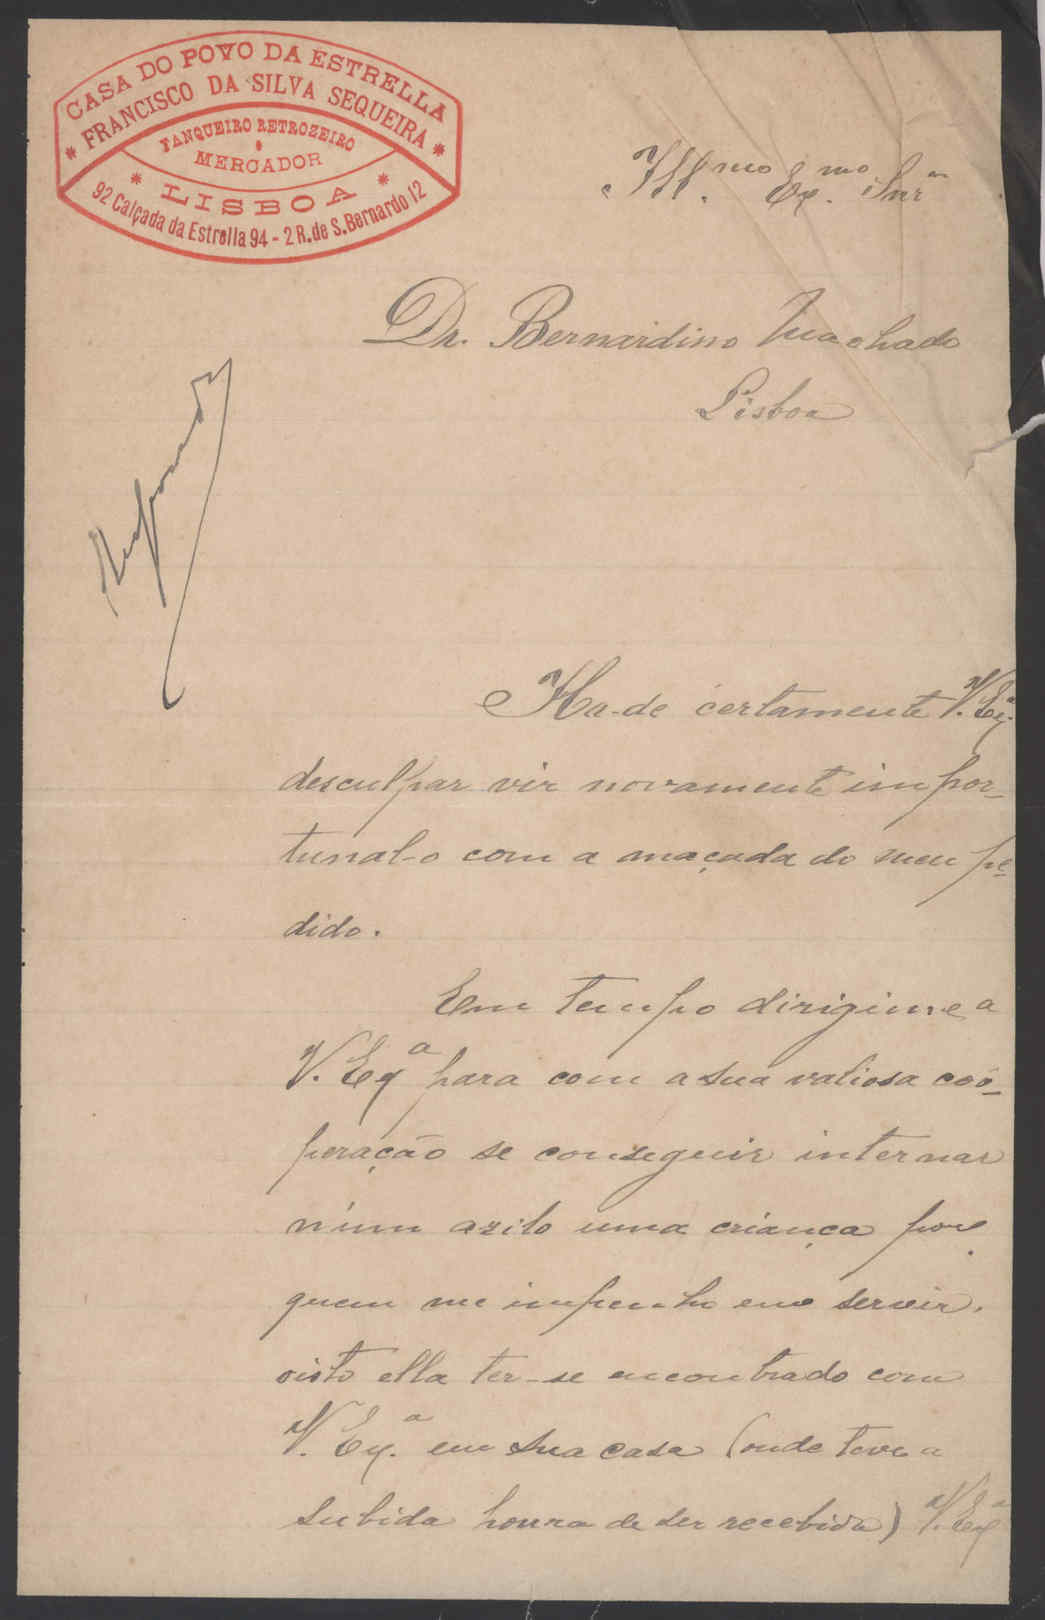 CASA DO POVO DA ESTRELLA
* FRANCISCO DA SILVA SEQUEIRA *
FANQUEIRO RETROZEIRO
MERCADOR
* LISBOA *
92 Calçada da Estrella 94 - 2 R. de S. Bernardo 12
Ill.mo Ex.mo Snr
Dr. Bernardino Machado
Lisboa
Ha-de certamente V. Exª
desculpar vir novamente impor-
tunal-o com a maçada do meu pe-
dido.
Em tempo dirigi-me a
V. Exª para com a sua valiosa coo-
peração se conseguir internar
n'um azilo uma criança por
quem me impenho em servir,
visto ella ter-se encontrado com
V. Ex.ª em sua casa (onde teve a
subida honra de ser recebida) V. Exª